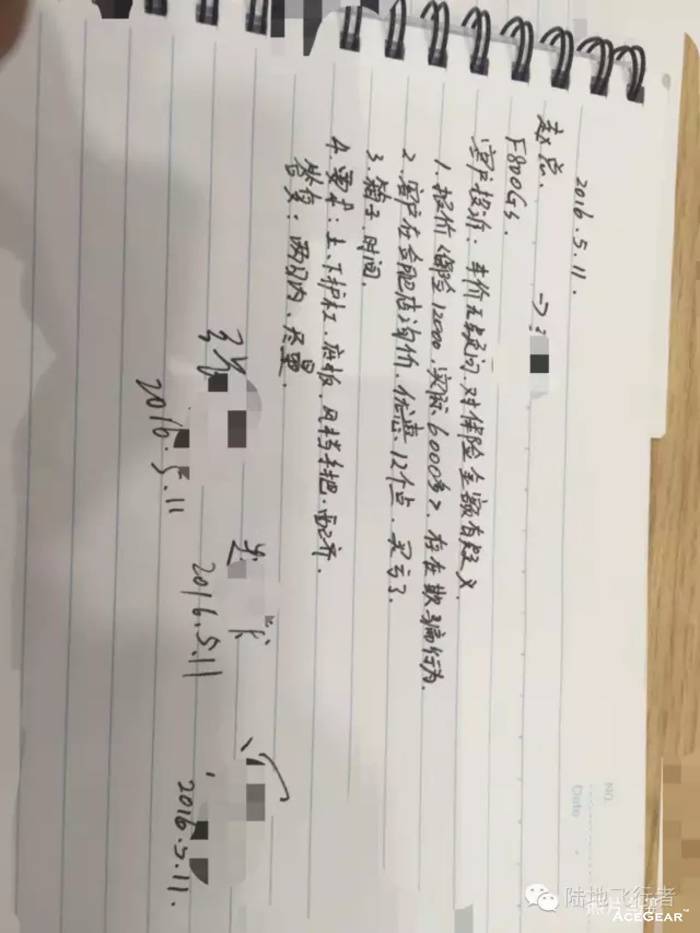 2016.5.11.
赵总. →:
F800Gs.
客户投诉: 车价无疑问, 对保险金额有疑义.
1. 报价(保险12000, 实际6000多), 存在欺骗行为.
2. 客户在合肥店询价, 优惠12个点, 买亏了.
3. 箱子, 时间.
4. 要求: 上、下护杠, 底板, 风挡, 手把. 配齐.
答复: 两日内, 尽量.
2016.5.11
2016.5.11
2016.5.11.
NO.
Date
陆地飞行者
ACEGEAR™